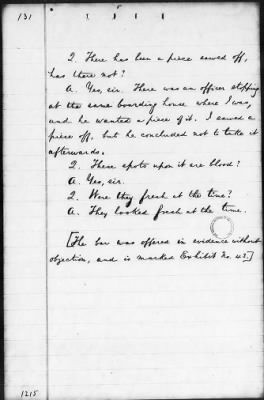 131
Q. There has been a piece sawed off,
has there not?
A. Yes, sir. There was an officer stopping
at the same boarding house where I was,
and he wanted a piece of it. I sawed a
piece off, but he concluded not to take it
afterwards.
Q. These spots upon it are blood?
A. Yes, sir.
Q. Were they fresh at the time?
A. They looked fresh at the time.
[The bar was offered in evidence without
objection, and is marked Exhibit No. 43.]
1215